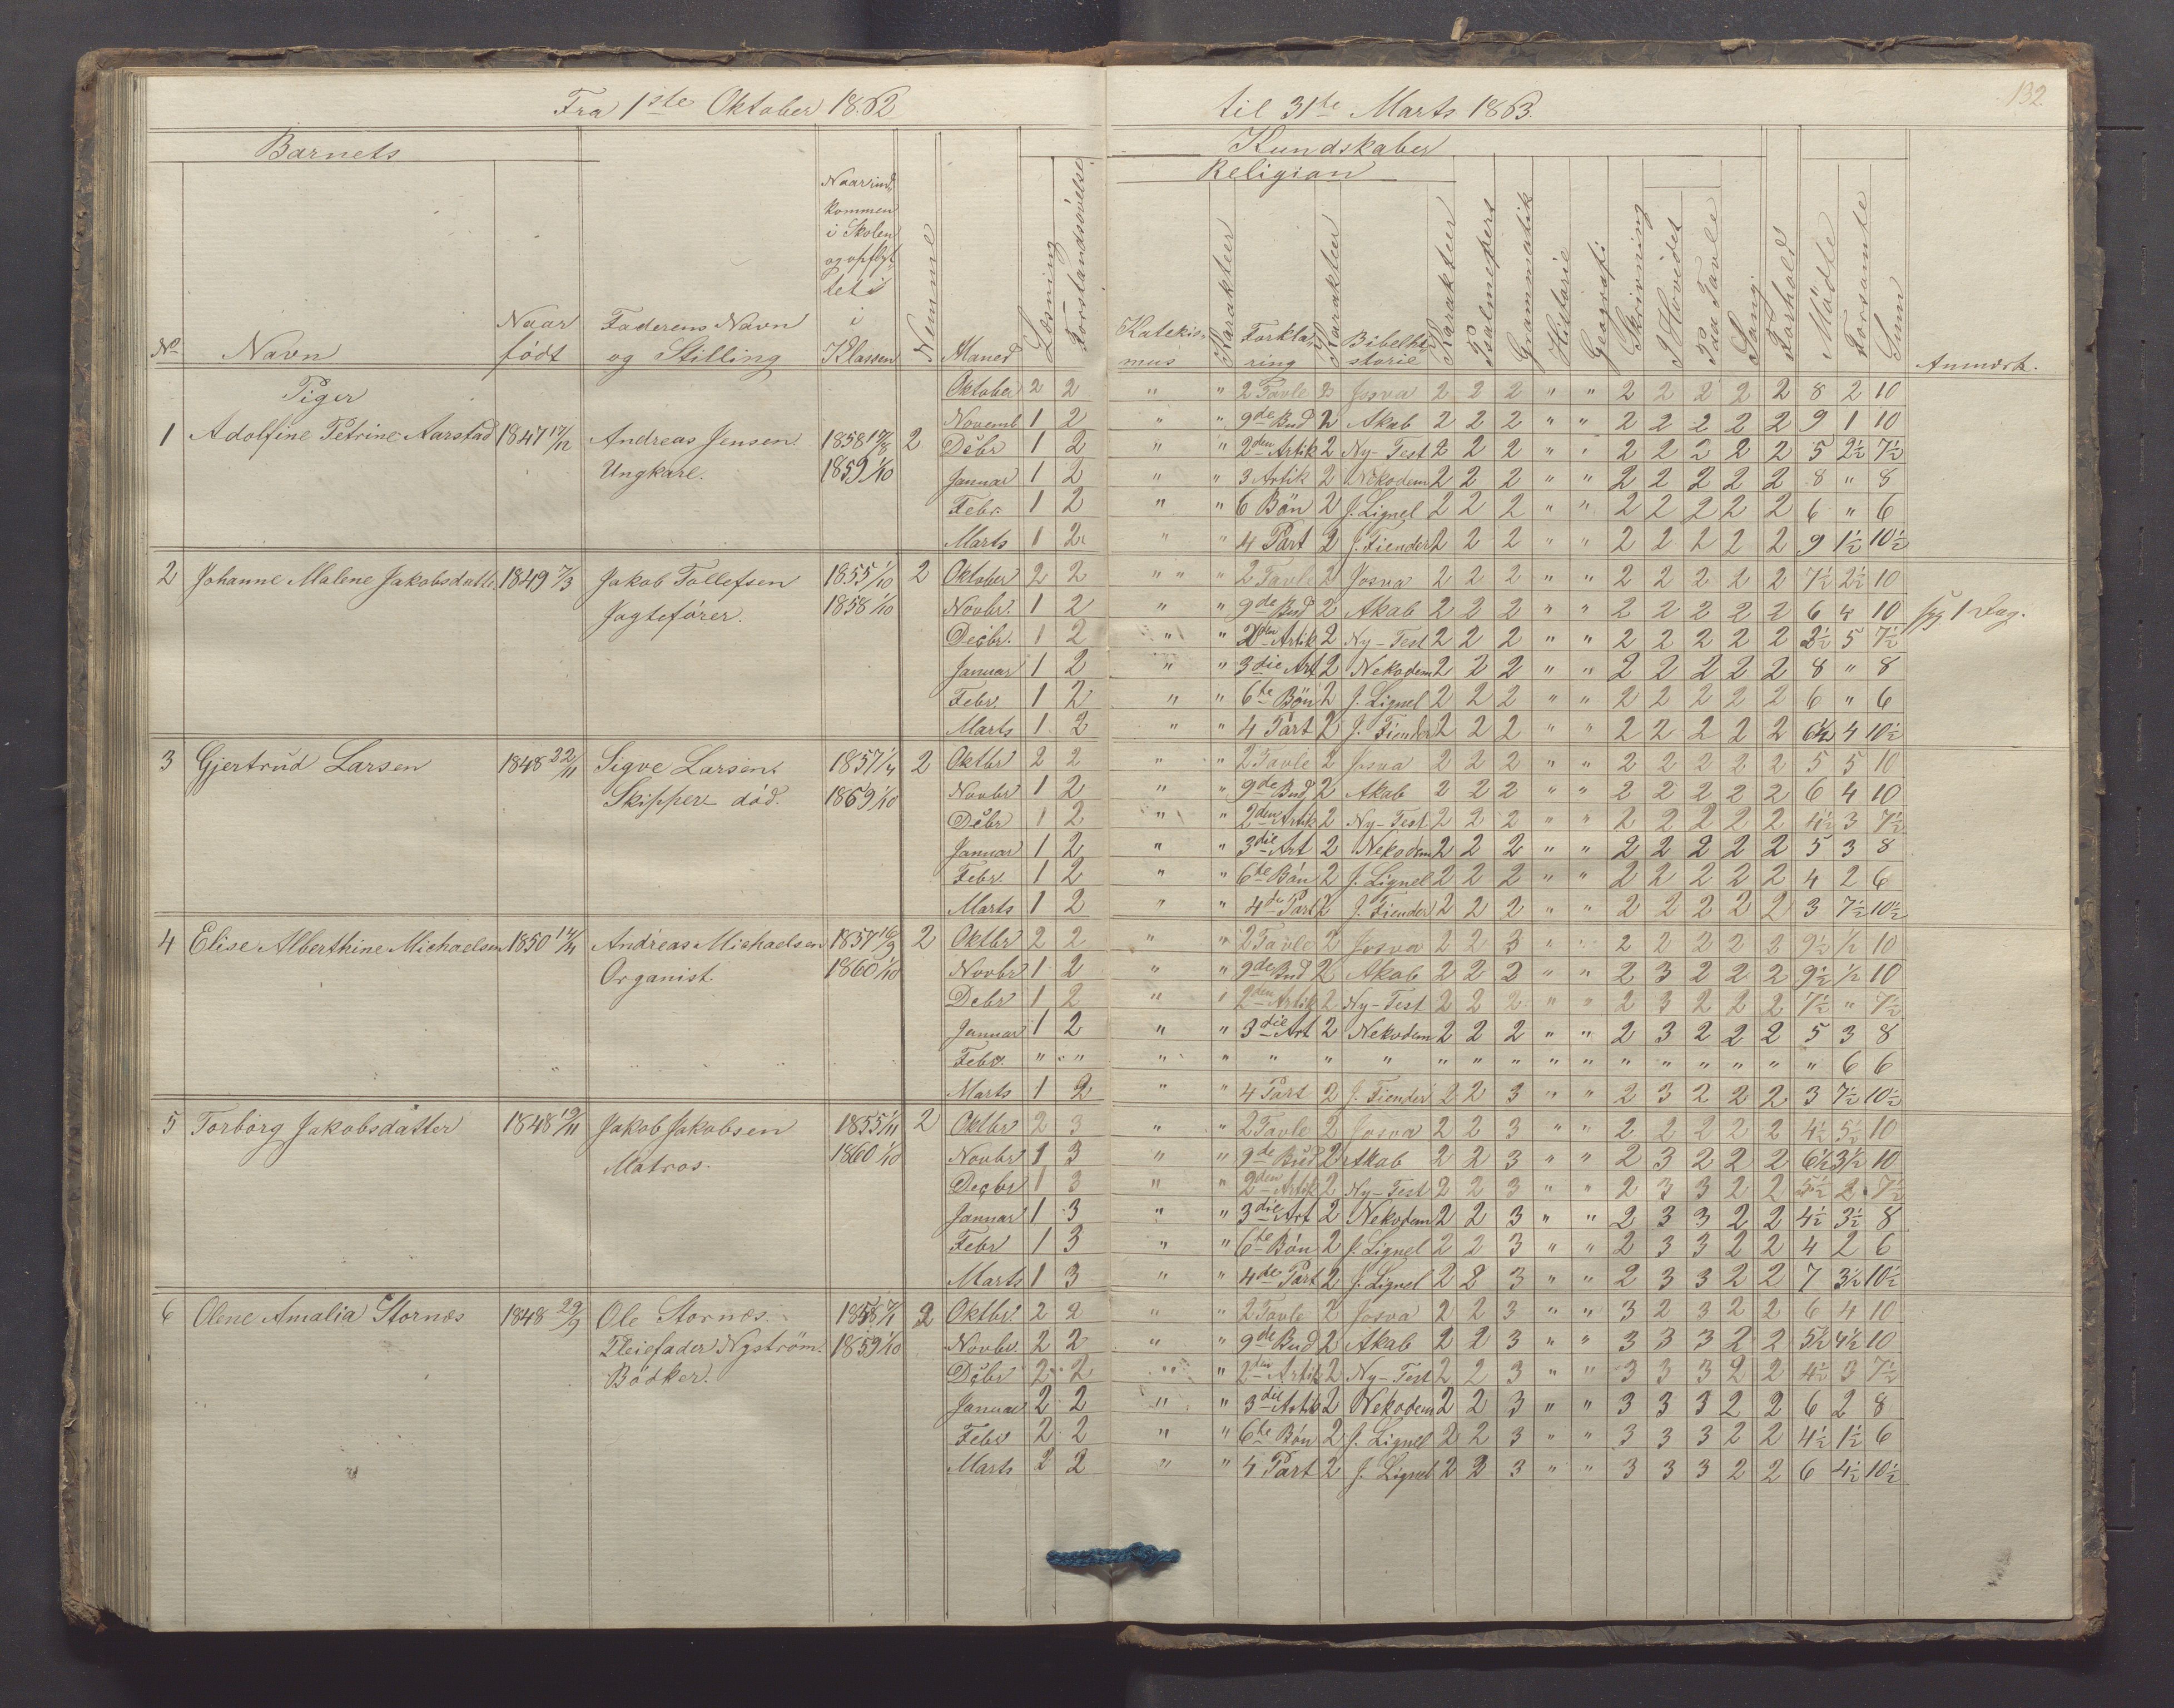 132
Fra 1ste Oktober 1862 til 31te Marts 1863.
Barnets Kundskaber
Religion
No Navn Naar født Faderens Navn og Stilling Naar indkommen i Skolen og opflyttet i Klassen Numme Maned Læsning Forstandsøvelse Katekismus Karakter Forklaring Karakter Bibelhistorie Karakter Psalmevers Grammatik Historie Geografi Skrivning I Hovedet Paa Tavle Sang Forhold Mødte Forsømte Sum Anmærk.
Piger Oktober 2 2 " " 2 Tavle 2 Josva 2 2 2 " " 2 2 2 2 2 8 2 10
1 Adolfine Petrine Aarstad 1847 Andreas Jensen 1858 2 Novemb 1 2 " " 9de Bud 2 Akab 2 2 2 " " 2 2 2 2 2 9 1 10
Ungkarl. 1859 1/10 Debr 1 2 " " 2den Artik 2 Ny-Test 2 2 2 " " 2 2 2 2 2 5 2½ 7½
Januar 1 2 " " 3 Artik 2 Nekodem 2 2 2 " " 2 2 2 2 2 8 " 8
Febr. 1 2 " " 6 Bön 2 J. Lignel 2 2 2 " " 2 2 2 2 2 6 " 6
Marts 1 2 " " 4 Part 2 J. Fiender 2 2 2 " " 2 2 2 2 2 9 1½ 10½
2 Johanne Malene Jakobsdatter 1849 7/3 Jakob Tollefsen 1855 1/10 2 Oktober 2 2 " " 2 Tavle 2 Josva 2 2 2 " " 2 2 2 2 2 7½ 2½ 10
Jagtefører. 1858 1/10 Novbr. 1 2 " " 9de Bud 2 Akab 2 2 2 " " 2 2 2 2 2 6 4 10 syg 1 Dag.
Decbr. 1 2 " " 2den Artik 2 Ny-Test 2 2 2 " " 2 2 2 2 2 2½ 5 7½
Januar 1 2 " " 3die Art 2 Nekodem 2 2 2 " " 2 2 2 2 2 8 " 8
Febr. 1 2 " " 6te Bön 2 J. Lignel 2 2 2 " " 2 2 2 2 2 6 " 6
Marts 1 2 " " 4 Part 2 J. Fiender 2 2 2 " " 2 2 2 2 2 6½ 4 10½
3 Gjertrud Larsen 1848 22/11 Sigve Larsen. 1857 2 Oktbr 2 2 " " 2 Tavle 2 Josva 2 2 2 " " 2 2 2 2 2 5 5 10
Skipper död. 1859 1/10 Novbr 1 2 " " 9de Bud 2 Akab 2 2 2 " " 2 2 2 2 2 6 4 10
Debr 1 2 " " 2den Artik 2 Ny-Test 2 2 2 " " 2 2 2 2 2 4½ 3 7½
Januar 1 2 " " 3die Art 2 Nekodem 2 2 2 " " 2 2 2 2 2 5 3 8
Febr. 1 2 " " 6te Bön 2 J. Lignel 2 2 2 " " 2 2 2 2 2 4 2 6
Marts 1 2 " " 4de Part 2 J. Fiender 2 2 2 " " 2 2 2 2 2 3 7½ 10½
4 Elise Alberthine Michaelsen 1850 Andreas Michaelsen 1857 2 Oktbr 2 2 " " 2 Tavle 2 Josva 2 2 3 " " 2 2 2 2 2 9½ ½ 10
Organist. 1860 1/10 Novbr 1 2 " " 9de Bud 2 Akab 2 2 2 " " 2 3 2 2 2 9½ ½ 10
Debr 1 2 " " 2den Artik 2 Ny-Test 2 2 2 " " 2 3 2 2 2 7½ " 7½
Januar 1 2 " " 3die Art 2 Nekodem 2 2 2 " " 2 3 2 2 2 5 3 8
Febr. " " " " " " " " " " " " " " " " " " 6 6
Marts 1 2 " " 4 Part 2 J. Fiender 2 2 3 " " 2 3 2 2 2 3 7½ 10½
5 Torborg Jakobsdatter 1848 Jakob Jakobsen 1855 1/11 2 Oktbr 2 3 " " 2 Tavle 2 Josva 2 2 3 " " 2 2 2 2 2 4½ 5½ 10
Matros. 1860 1/10 Novbr 1 3 " " 9de Bud 2 Akab 2 2 3 " " 2 3 2 2 2 6½ 3½ 10
Decbr 1 3 " " 2den Artik 2 Ny-Test 2 2 3 " " 2 3 3 2 2 5½ 2 7½
Januar 1 3 " " 3die Art 2 Nekodem 2 2 3 " " 2 3 3 2 2 4½ 3½ 8
Febr 1 3 " " 6te Bön 2 J. Lignel 2 2 3 " " 2 3 3 2 2 4 2 6
Marts 1 3 " " 4de Part 2 J. Lignel 2 2 3 " " 2 3 3 2 2 7 3½ 10½
6 Olene Amalia Stornæs 1848 29/9 Ole Stornæs. 2 Oktbr. 2 2 " " 2 Tavle 2 Josva 2 2 3 " " 3 2 3 2 2 6 4 10
Pleiefader Nyström. 1859 1/10 Novbr. 2 2 " " 9de Bud 2 Akab 2 2 3 " " 3 3 3 2 2 5½ 4½ 10
Bödker. Debr 2 2 " " 2den Artik 2 Ny-Test 2 2 3 " " 3 3 3 2 2 4½ 3 7½
Januar 2 2 " " 3die Artik 2 Nekodem 2 2 3 " " 3 3 3 2 2 6 2 8
Febr 2 2 " " 6te Bön 2 J. Lignel 2 2 3 " " 3 3 3 2 2 4½ 1½ 6
Marts 2 2 " " 4 Part 2 J. Lignel 2 2 3 " " 3 3 3 2 2 6 4½ 10½